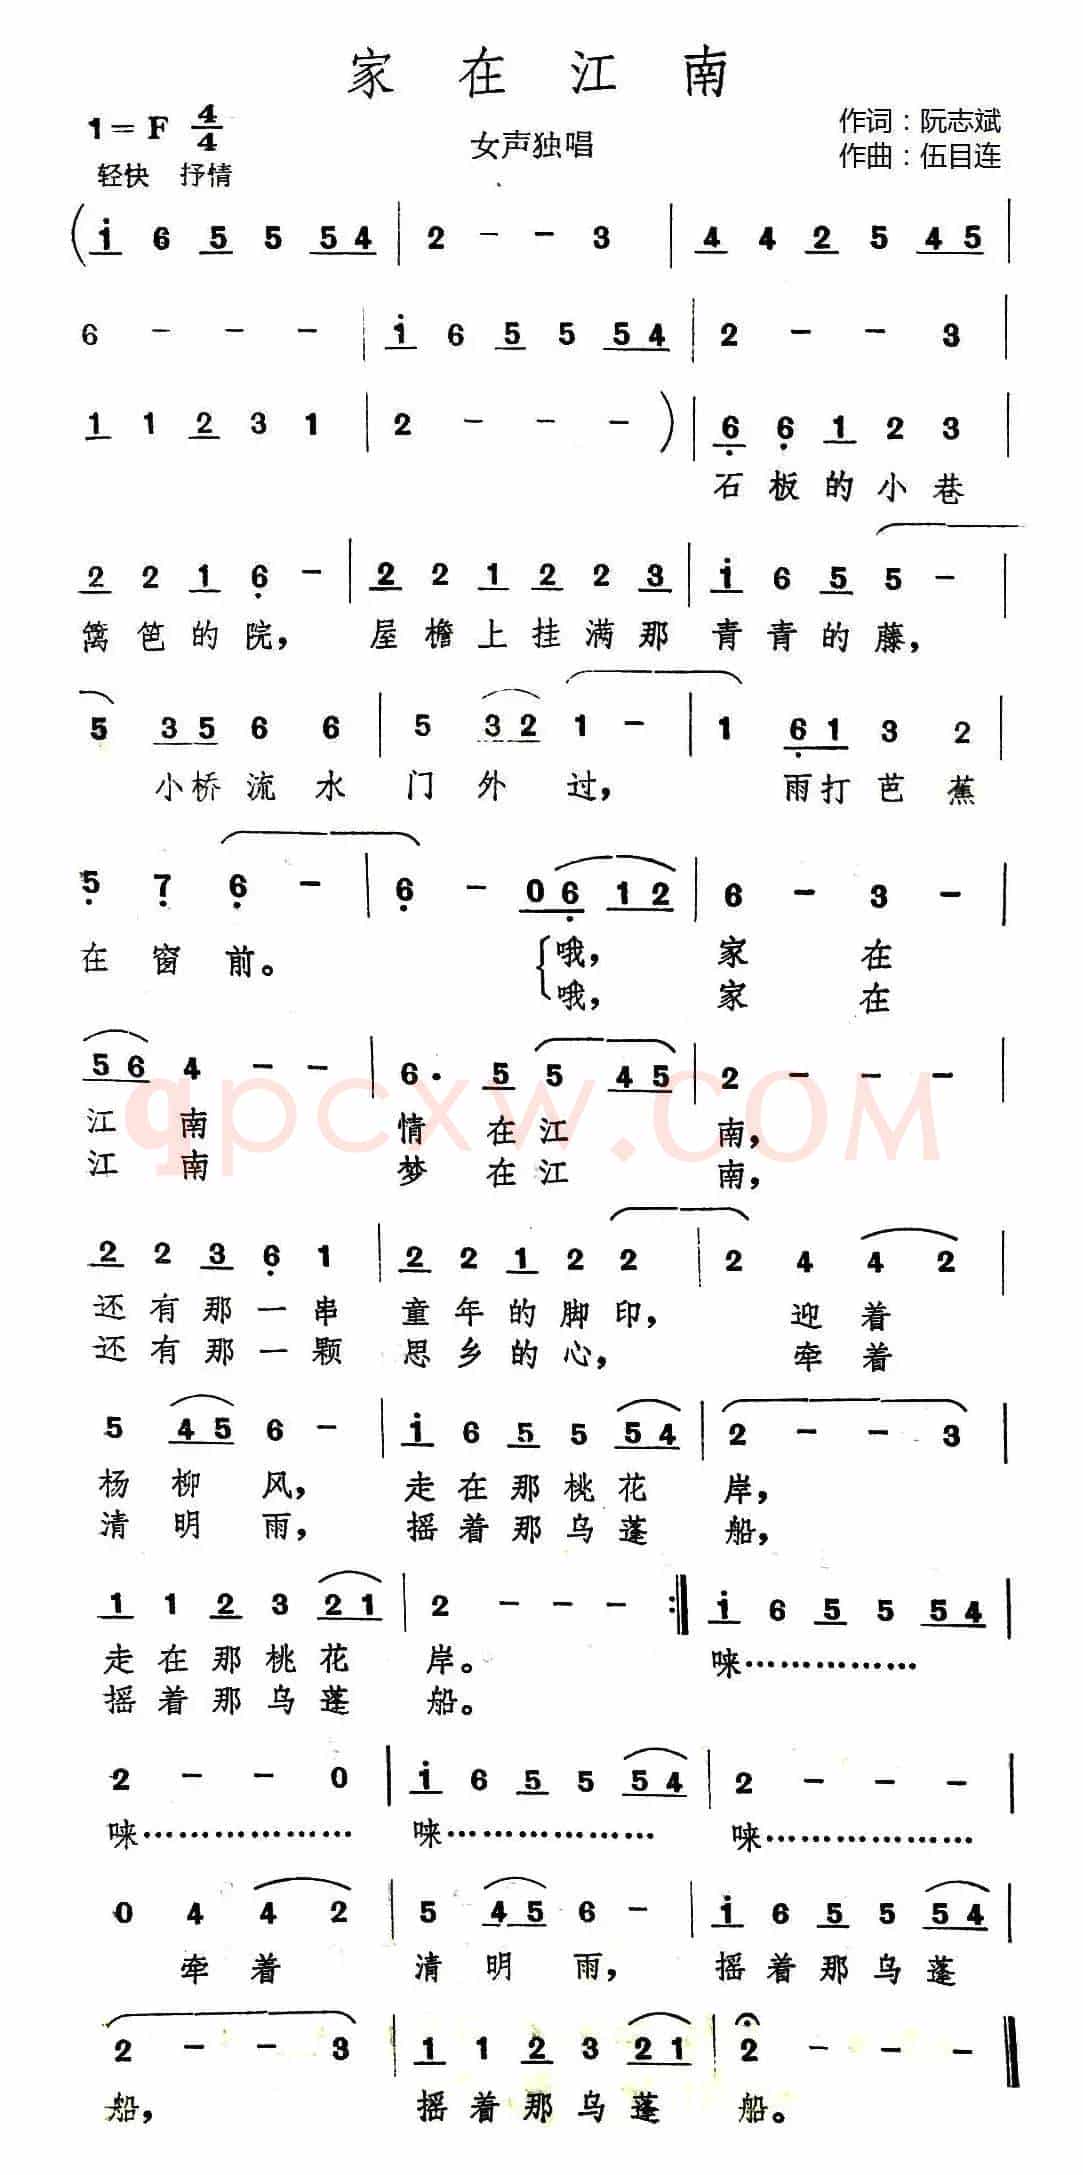 家在江南
1=F 4/4
女声独唱
作词：阮志斌
作曲：伍目连
轻快 抒情
(i 6 5 5 5 4 | 2 - - 3 | 4 4 2 5 4 5 |
6 - - - | i 6 5 5 5 4 | 2 - - 3 |
1 1 2 3 1 | 2 - - - ) | 6 6 1 2 3 |
石板的小巷
2 2 1 6 - | 2 2 1 2 2 3 | i 6 5 5 - |
篱笆的院，屋檐上挂满那青青的藤，
5 3 5 6 6 | 5 3 2 1 - | 1 6 1 3 2 |
小桥流水门外过，雨打芭蕉
5 7 6 - | 6 - 0 6 1 2 | 6 - 3 - |
在窗前。哦，家在
哦，家在
5 6 4 - - | 6· 5 5 4 5 | 2 - - - |
江南情在江南，
江南梦在江南，
qpcxw.COM
2 2 3 6 1 | 2 2 1 2 2 | 2 4 4 2 |
还有那一串童年的脚印，迎着
还有那一颗思乡的心，牵着
5 4 5 6 - | i 6 5 5 5 4 | 2 - - 3 |
杨柳风，走在那桃花岸，
清明雨，摇着那乌蓬船，
1 1 2 3 2 1 | 2 - - - :| i 6 5 5 5 4 |
走在那桃花岸。唻………………
摇着那乌蓬船。
2 - - 0 | i 6 5 5 5 4 | 2 - - - |
唻………………… 唻………………… 唻…………………
0 4 4 2 | 5 4 5 6 - | i 6 5 5 5 4 |
牵着清明雨，摇着那乌蓬
2 - - 3 | 1 1 2 3 2 1 | 2 - - - ‖
船，摇着那乌蓬船。